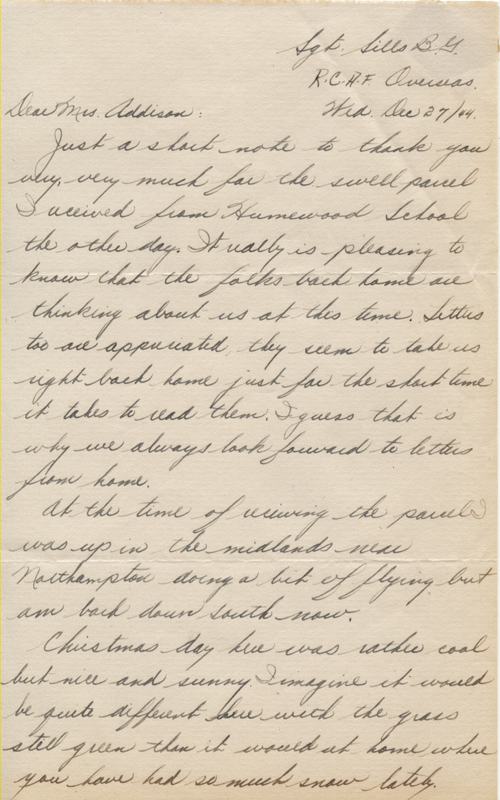 Sgt. Sills B.G.
R.C.A.F. Overseas.
Dear Mrs. Addison: Wed. Dec 27/44.
Just a short note to thank you
very, very much for the swell parcel
I received from Humewood School
the other day. It really is pleasing to
know that the folks back home are
thinking about us at this time. Letters
too are appreciated, they seem to take us
right back home just for the short time
it takes to read them. I guess that is
why we always look forward to letters
from home.
At the time of receiving the parcel I
was up in the midlands near
Northampton doing a bit of flying but
am back down south now.
Christmas day here was rather cool
but nice and sunny. I imagine it would
be quite different here with the grass
still green than it would at home where
you have had so much snow lately.